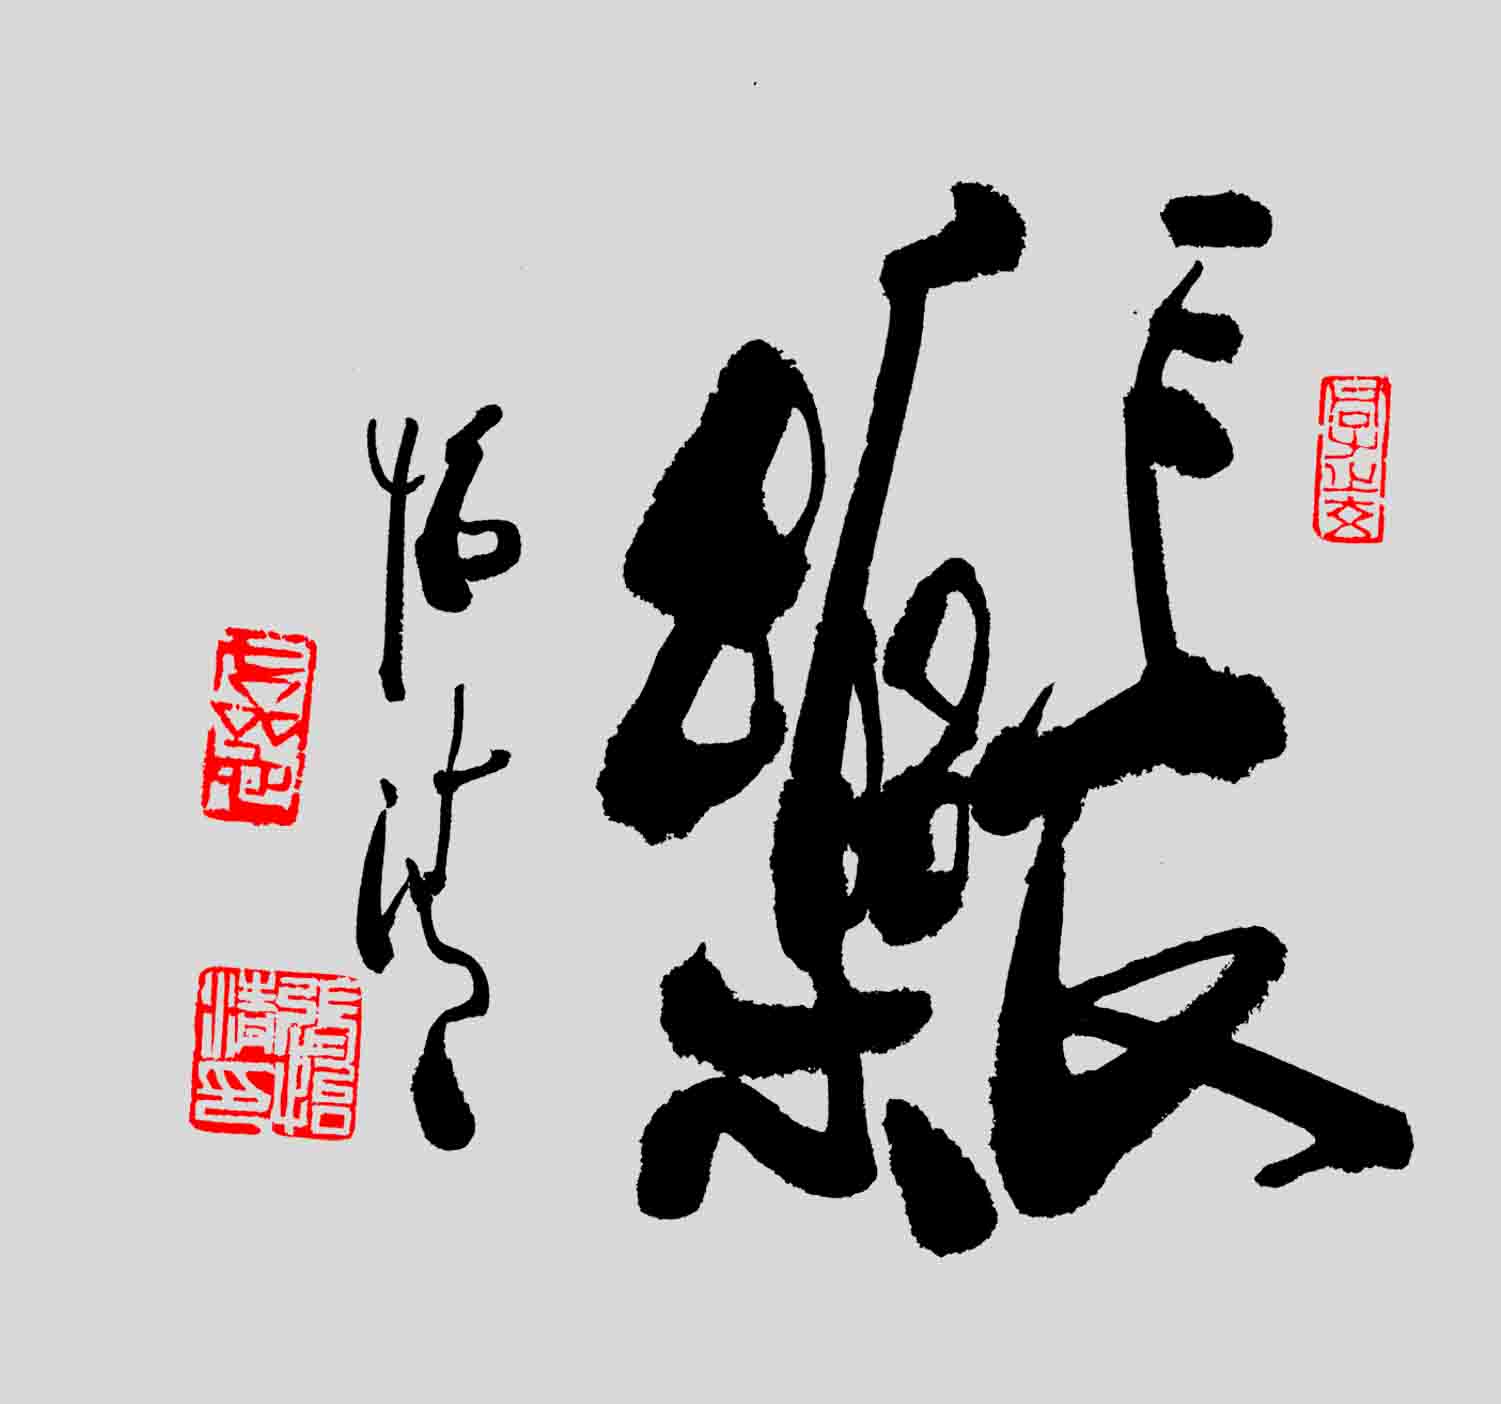 長樂
怡清
張怡清印